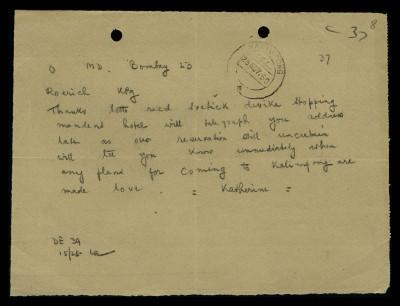 8
37
O MD. Bombay 23
37
Roerich Kpg
Thanks both recd stopping
hotel will telegraph you address
later as our reservation still uncertain
will let you know immediately when
any plans for coming to Kalimpong are
made love. = Katherine =
DE 39
15/25